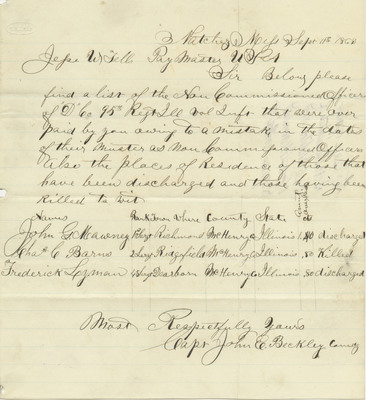 Natchez Miss Sept 11th 186
Jesse W Fell Pay Master U S A
Sir Below please
find a list of the Non Commissioned Officers
of "D" Co 95th Regt Ill Vol Inft that were over
paid by you owing to a Mistake in the date
of their Muster as Non Commissioned Officers
Also the places of Residence of those that
have been discharged and those having been
Killed to wit
Names Rank Town where County State
John G Mawney Sergt Richmond McHenry Co Illinois 1.80 discharged
Chas C Barns Serg Ridgefield McHenry Co Illinois .80 Killed
Frederick Layman Serg Dearborn McHenry Co Illinois .80 discharged
Most Respectfully Yours
Capt John E Beckley Comdg